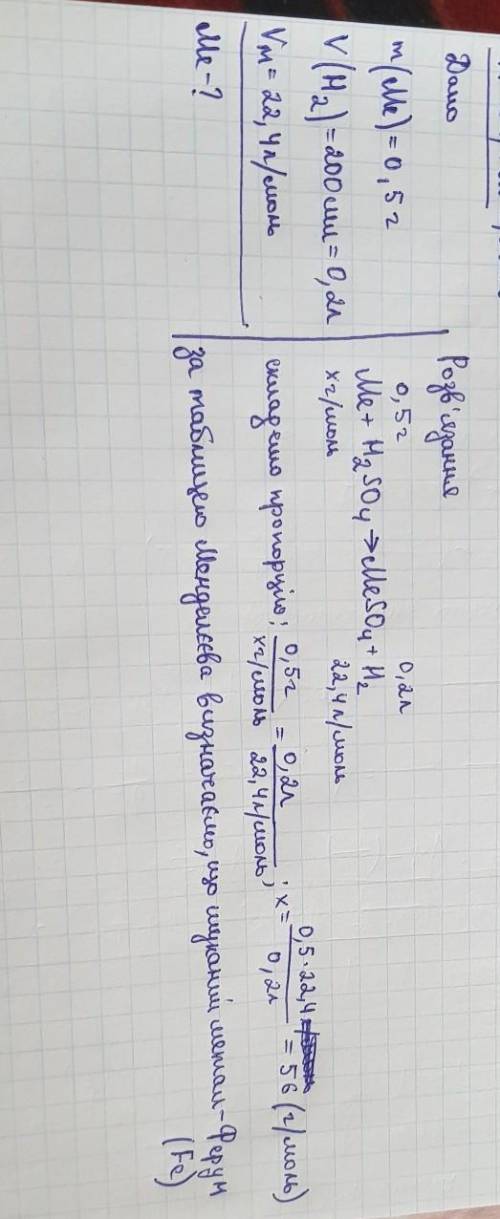 Дано
m(Me) = 0,5 г
V(H₂) = 200 мл = 0,2 л
Vм = 22,4 л/моль
Me - ?
Розв'язання
0,5 г 0,2 л
Me + H₂SO₄ → MeSO₄ + H₂
x г/моль 22,4 л/моль
складемо пропорцію: 0,5 г / x г/моль = 0,2 л / 22,4 л/моль; x = 0,5 · 22,4 / 0,2 л = 56 (г/моль)
за таблицею Менделєєва визначаємо, що шуканий метал - Ферум
(Fe)